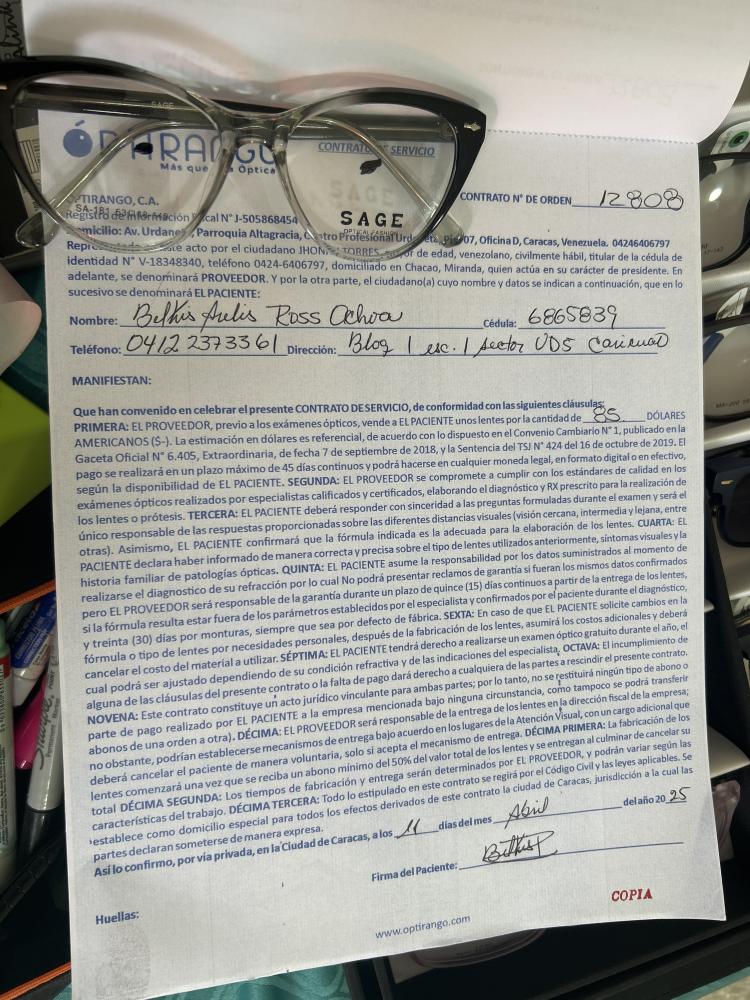 SAGE
ÓPTIRANGO
Más que Óptica
CONTRATO DE SERVICIO
CONTRATO N° DE ORDEN 12808
OPTIRANGO, C.A.
SA-181
SAGE
Registro de Información Fiscal N° J-505868454
Domicilio: Av. Urdaneta, Parroquia Altagracia, Centro Profesional Urdaneta, Piso 07, Oficina D, Caracas, Venezuela. 04246406797
Representado este acto por el ciudadano JHON TORRES, mayor de edad, venezolano, civilmente hábil, titular de la cédula de
identidad N° V-18348340, teléfono 0424-6406797, domiciliado en Chacao, Miranda, quien actúa en su carácter de presidente. En
adelante, se denominará PROVEEDOR. Y por la otra parte, el ciudadano(a) cuyo nombre y datos se indican a continuación, que en lo
sucesivo se denominará EL PACIENTE:
Nombre: Belkis Aulis Ross Ochoa Cédula: 6865839
Teléfono: 0412 2373361 Dirección: Bloq 1 esc. 1 sector UD5 Caricuao
MANIFIESTAN:
Que han convenido en celebrar el presente CONTRATO DE SERVICIO, de conformidad con las siguientes cláusulas:
PRIMERA: EL PROVEEDOR, previo a los exámenes ópticos, vende a EL PACIENTE unos lentes por la cantidad de 85 DÓLARES
AMERICANOS ($-). La estimación en dólares es referencial, de acuerdo con lo dispuesto en el Convenio Cambiario N° 1, publicado en la
Gaceta Oficial N° 6.405, Extraordinaria, de fecha 7 de septiembre de 2018, y la Sentencia del TSJ N° 424 del 16 de octubre de 2019. El
pago se realizará en un plazo máximo de 45 días continuos y podrá hacerse en cualquier moneda legal, en formato digital o en efectivo,
según la disponibilidad de EL PACIENTE. SEGUNDA: EL PROVEEDOR se compromete a cumplir con los estándares de calidad en los
exámenes ópticos realizados por especialistas calificados y certificados, elaborando el diagnóstico y RX prescrito para la realización de
los lentes o prótesis. TERCERA: EL PACIENTE deberá responder con sinceridad a las preguntas formuladas durante el examen y será el
único responsable de las respuestas proporcionadas sobre las diferentes distancias visuales (visión cercana, intermedia y lejana, entre
otras). Asimismo, EL PACIENTE confirmará que la fórmula indicada es la adecuada para la elaboración de los lentes. CUARTA: EL
PACIENTE declara haber informado de manera correcta y precisa sobre el tipo de lentes utilizados anteriormente, síntomas visuales y la
historia familiar de patologías ópticas. QUINTA: EL PACIENTE asume la responsabilidad por los datos suministrados al momento de
realizarse el diagnostico de su refracción por lo cual No podrá presentar reclamos de garantía si fueran los mismos datos confirmados
pero EL PROVEEDOR será responsable de la garantía durante un plazo de quince (15) días continuos a partir de la entrega de los lentes,
si la fórmula resulta estar fuera de los parámetros establecidos por el especialista y confirmados por el paciente durante el diagnóstico,
y treinta (30) días por monturas, siempre que sea por defecto de fábrica. SEXTA: En caso de que EL PACIENTE solicite cambios en la
fórmula o tipo de lentes por necesidades personales, después de la fabricación de los lentes, asumirá los costos adicionales y deberá
cancelar el costo del material a utilizar. SÉPTIMA: EL PACIENTE tendrá derecho a realizarse un examen óptico gratuito durante el año, el
cual podrá ser ajustado dependiendo de su condición refractiva y de las indicaciones del especialista. OCTAVA: El incumplimiento de
alguna de las cláusulas del presente contrato o la falta de pago dará derecho a cualquiera de las partes a rescindir el presente contrato.
NOVENA: Este contrato constituye un acto jurídico vinculante para ambas partes; por lo tanto, no se restituirá ningún tipo de abono o
parte de pago realizado por EL PACIENTE a la empresa mencionada bajo ninguna circunstancia, como tampoco se podrá transferir
abonos de una orden a otra). DÉCIMA: EL PROVEEDOR será responsable de la entrega de los lentes en la dirección fiscal de la empresa;
no obstante, podrían establecerse mecanismos de entrega bajo acuerdo en los lugares de la Atención Visual, con un cargo adicional que
deberá cancelar el paciente de manera voluntaria, solo si acepta el mecanismo de entrega. DÉCIMA PRIMERA: La fabricación de los
lentes comenzará una vez que se reciba un abono mínimo del 50% del valor total de los lentes y se entregan al culminar de cancelar su
total DÉCIMA SEGUNDA: Los tiempos de fabricación y entrega serán determinados por EL PROVEEDOR, y podrán variar según las
características del trabajo. DÉCIMA TERCERA: Todo lo estipulado en este contrato se regirá por el Código Civil y las leyes aplicables. Se
establece como domicilio especial para todos los efectos derivados de este contrato la ciudad de Caracas, jurisdicción a la cual las
partes declaran someterse de manera expresa.
Así lo confirmo, por vía privada, en la Ciudad de Caracas, a los 11 días del mes Abril del año 2025
Firma del Paciente: Belkis R
Huellas:
COPIA
www.optirango.com